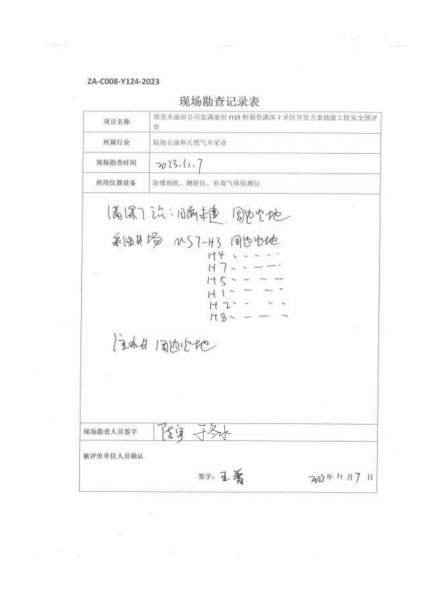 ZA-C008-Y124-2023
现场勘查记录表
项目名称 塔里木油田公司富满油田 FI19 断裂带满深 7 井区开发方案地面工程安全预评价
所属行业 陆地石油和天然气开采业
现场勘查时间 2023.11.7
所用仪器设备 防爆相机、测距仪、有毒气体检测仪
满深7站：目前未建 周边空地
井场 MS7-H3 周边空地
H4 、、、、
H7 、、、、
H5 、、、、
H1 、、、、
H2 、、、
H8 、、、、
注水井 周边空地
现场勘查人员签字
被评价单位人员确认
签字：王
2023 年 11 月 7 日